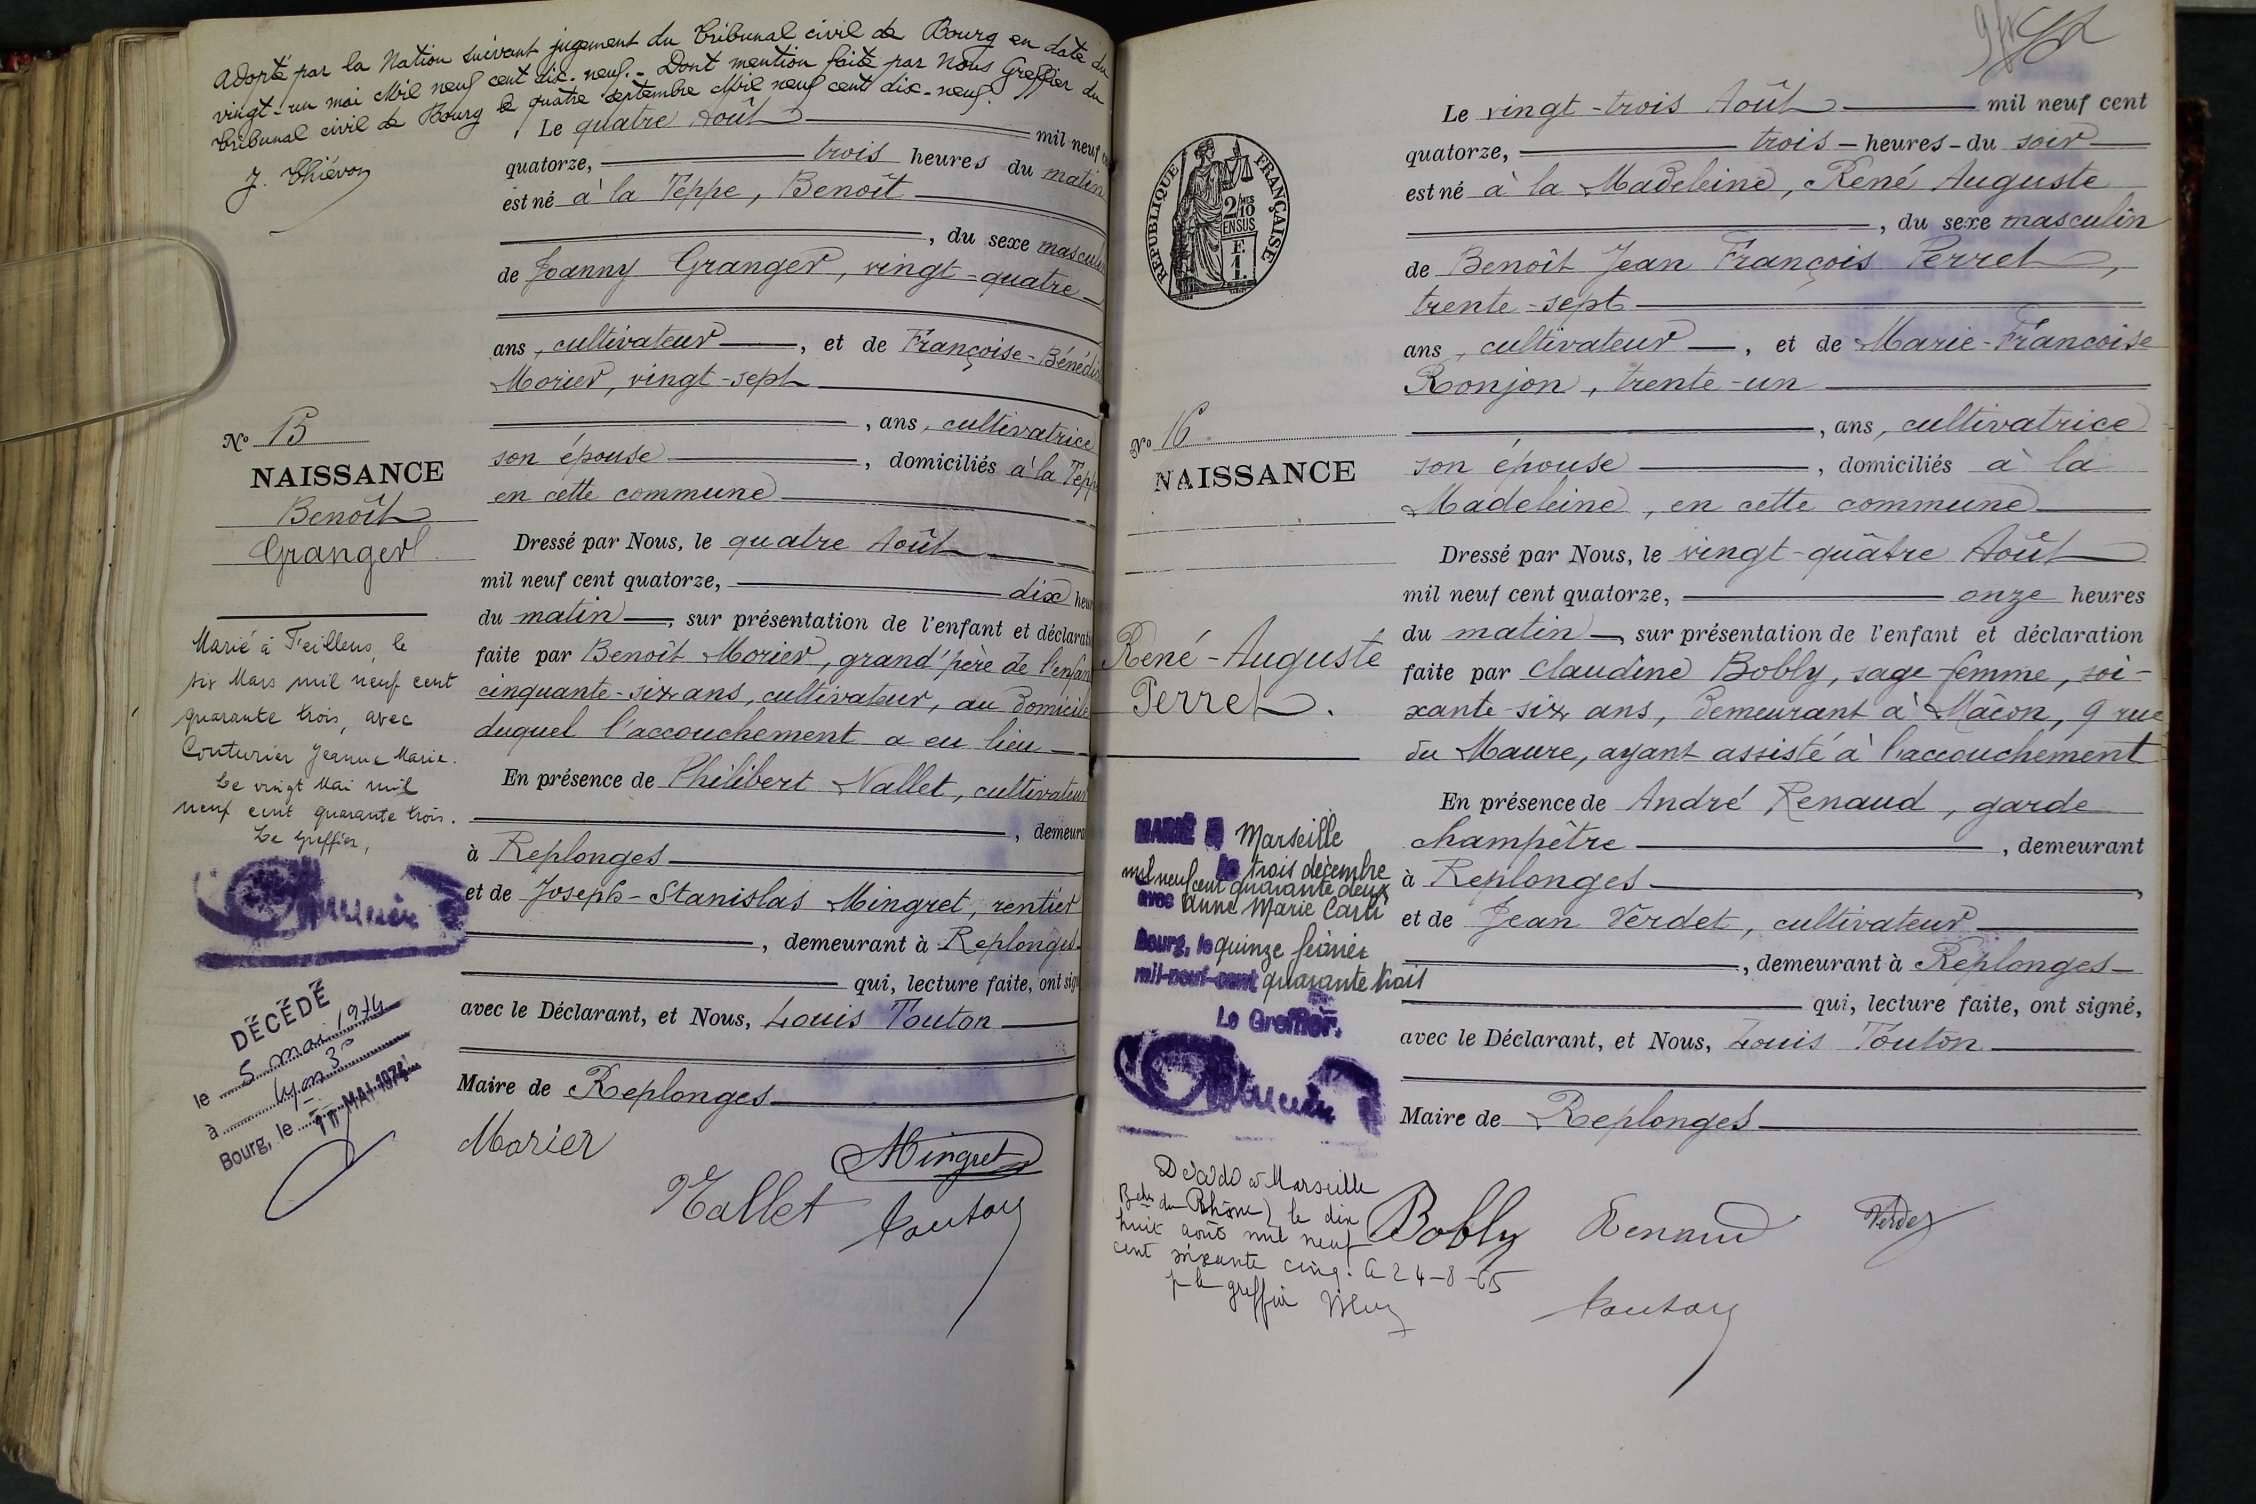 Adopté par la Nation suivant jugement du Tribunal civil de Bourg en date du
vingt-un mai Mil neuf cent dix-neuf.- Dont mention faite par Nous Greffier du
Tribunal civil de Bourg le quatre septembre Mil neuf cent dix-neuf.
J. Thiévon
Le quatre Août mil neuf
quatorze, trois heures du matin
est né à la Teppe, Benoît
, du sexe masculin
de Joanny Granger, vingt-quatre
ans, cultivateur, et de Françoise-Bénédi
Morier, vingt-sept
, ans, cultivatrice
son épouse, domiciliés à la Tepp
en cette commune
Dressé par Nous, le quatre Août
mil neuf cent quatorze, dix heur
du matin, sur présentation de l'enfant et déclarati
faite par Benoît Morier, grand'père de l'enfant
cinquante-six ans, cultivateur, au domicile
duquel l'accouchement a eu lieu
En présence de Philibert Nallet, cultivateur
, demeura
à Replonges
et de Joseph-Stanislas Mingret, rentier
, demeurant à Replonges
qui, lecture faite, ont sign
avec le Déclarant, et Nous, Louis Touton
Maire de Replonges
Morier
Mingret
Nallet
Touton
N° 15
NAISSANCE
Benoît
Granger
Marié à Feillens, le
six Mars mil neuf cent
quarante trois, avec
Couturier Jeanne Marie.
Le vingt Mai mil
neuf cent quarante trois.
Le Greffier,
DÉCÉDÉ
le 5 mai 1974
à Lyon 3e
Bourg, le MAI 1974
Le vingt-trois Août mil neuf cent
quatorze, trois heures du soir
est né à la Madeleine, René Auguste
, du sexe masculin
de Benoît Jean François Perret,
trente-sept
ans, cultivateur, et de Marie-Françoise
Ronjon, trente-un
, ans, cultivatrice
son épouse, domiciliés à la
Madeleine, en cette commune
Dressé par Nous, le vingt-quatre Août
mil neuf cent quatorze, onze heures
du matin, sur présentation de l'enfant et déclaration
faite par Claudine Bobly, sage femme, soi-
xante-six ans, demeurant à Mâcon, 9 rue
du Maure, ayant assisté à l'accouchement
En présence de André Renaud, garde
champêtre, demeurant
à Replonges,
et de Jean Verdet, cultivateur
, demeurant à Replonges
qui, lecture faite, ont signé,
avec le Déclarant, et Nous, Louis Touton
Maire de Replonges
Bobly Renaud Verdet
Touton
RÉPUBLIQUE FRANÇAISE
2/10
MES
EN SUS
F.
1.
N° 16
NAISSANCE
René-Auguste
Perret.
MARIÉ à Marseille
le trois décembre
mil neuf cent quarante deux
avec Anne Marie
Bourg, le quinze février
mil-neuf-cent quarante trois
Le Greffier,
Décédé à Marseille
Bches du Rhône) le dix
huit août mil neuf
cent soixante cinq. Le 24-8-65
p le greffier